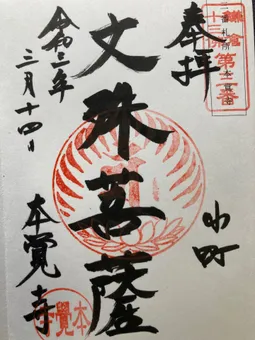 奉拝
鎌倉
十三佛
第三番
小町
文殊菩薩
令和三年
三月十四日
本覺寺
本覺寺